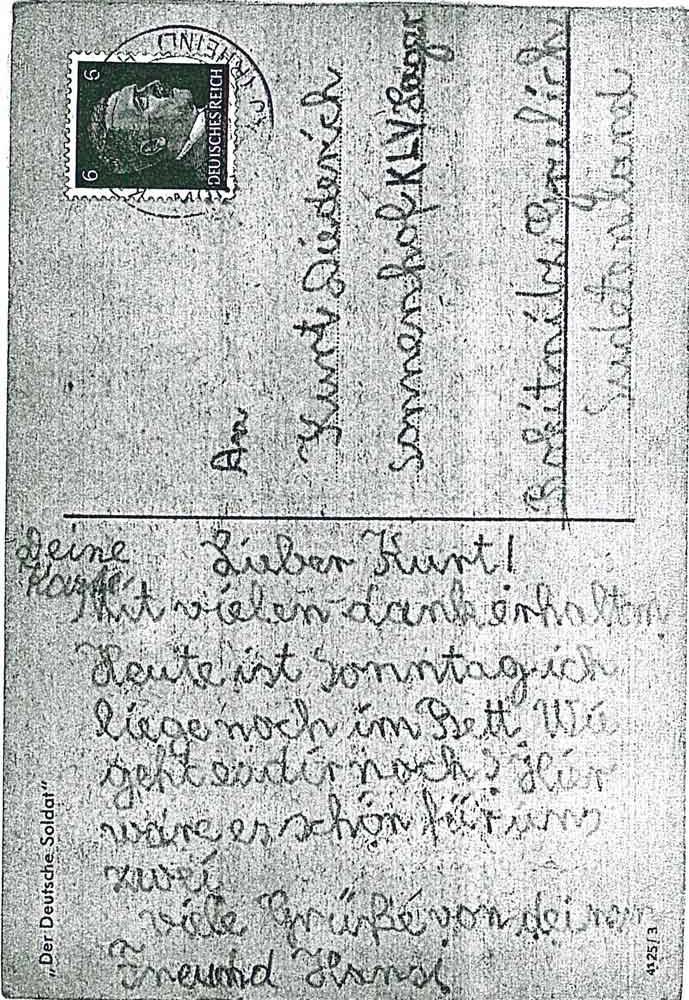 6 6
DEUTSCHES REICH
(RHEINL)
An
Kurt Diederich
Sonnenhof KLV Lager
Rokitnitz
Sudetenland
Deine
Karte
Lieber Kurt!
Mit vielen dank erhalten
Heute ist Sonntag ich
liege noch im Bett. Wie
geht es dir noch? Hier
wäre es schön für uns
zwei
viele Grüße von deinem
Freund Hans.
„Der Deutsche Soldat“
4125/3